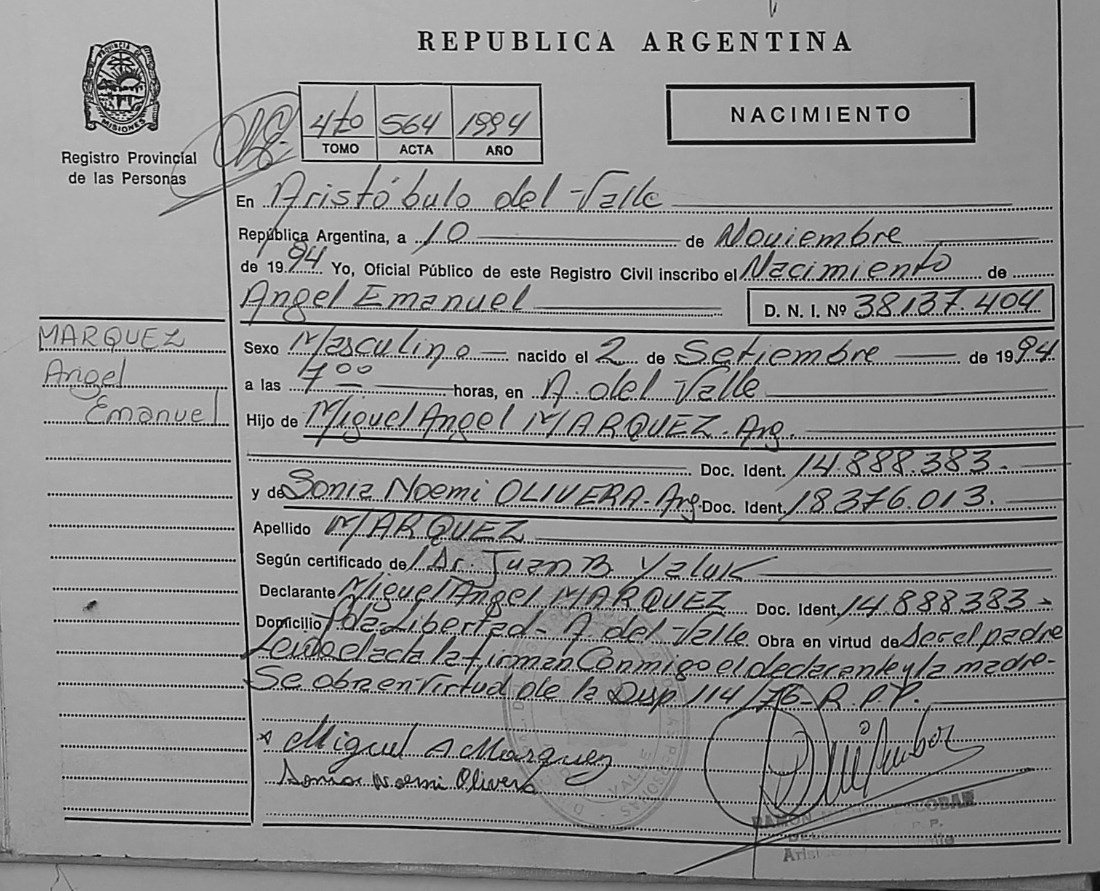 REPUBLICA ARGENTINA
PROVINCIA DE
MISIONES
Registro Provincial
de las Personas
4to 564 1994
TOMO ACTA AÑO
NACIMIENTO
En Aristóbulo del Valle
República Argentina, a 10 de Noviembre
de 1994 Yo, Oficial Público de este Registro Civil inscribo el Nacimiento de
Angel Emanuel D. N. I. Nº 38.137.404
MARQUEZ
Angel
Emanuel
Sexo Masculino nacido el 2 de Setiembre de 1994
a las 7 00 horas, en A. del Valle
Hijo de Miguel Angel MARQUEZ. Arg.
Doc. Ident. 14.888.383.
y de Sonia Noemi OLIVERA - Arg. Doc. Ident. 18.376.013.
Apellido MARQUEZ
Según certificado de Dr. Juan B
Declarante Miguel Angel MARQUEZ Doc. Ident. 14.888383-
Domicilio Pda. Libertad - A. del Valle Obra en virtud de ser el padre
Leida el acta la firman Conmigo el declarante y la madre-
Se obra en Virtud de la Disp 114/76-R.P.P.
x Miguel A Marquez
Sonia Noemi Olivera
RAMON